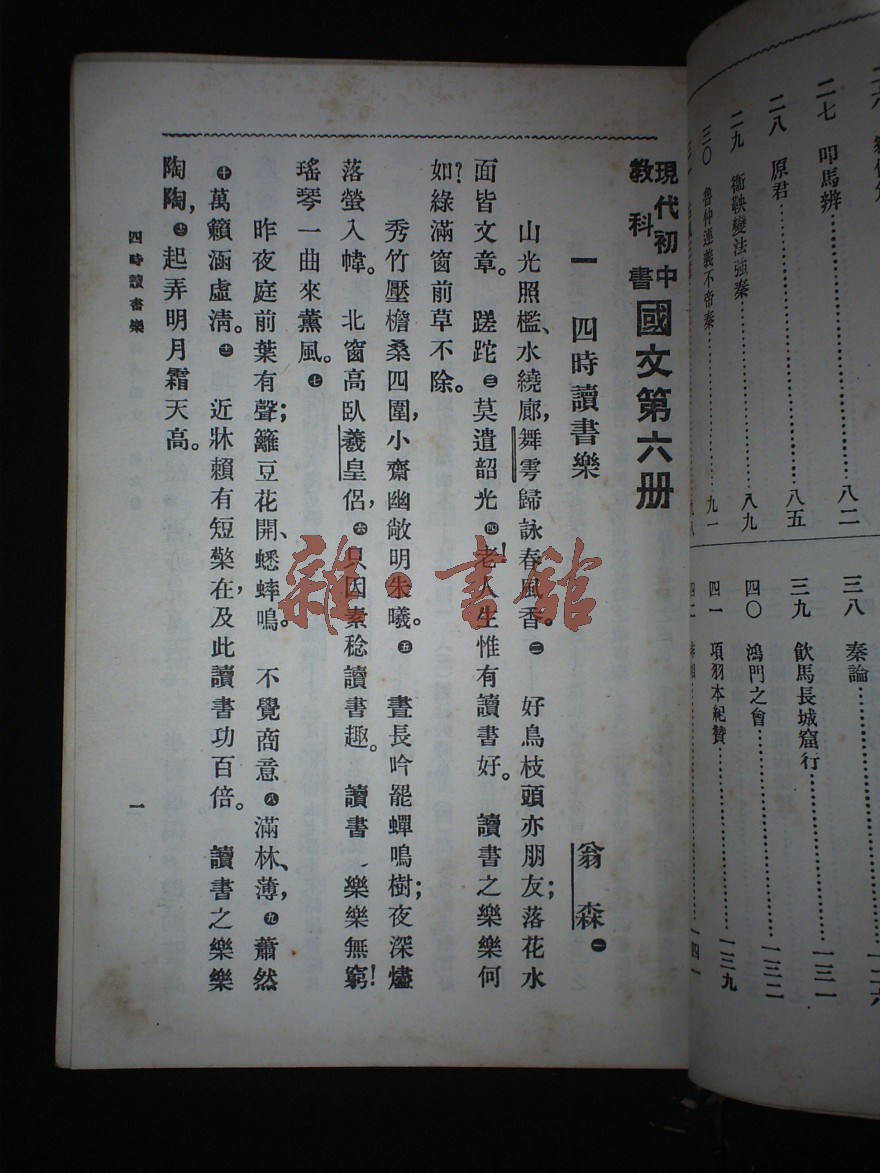 二七 叩馬辨 八二
二八 原君 八五
二九 衞鞅變法強秦 八九
三〇 魯仲連義不帝秦 九一
三八 秦論
三九 飲馬長城窟行 一三一
四〇 鴻門之會 一三二
四一 項羽本紀贊 一三九
現代初中教科書 國文第六册
一 四時讀書樂 翁森㊀
山光照檻、水繞廊，舞雩歸詠春風香。㊁ 好鳥枝頭亦朋友；落花水
面皆文章。 蹉跎㊂莫遣韶光㊃老！人生惟有讀書好。 讀書之樂樂何
如？綠滿窗前草不除。
秀竹壓檐桑四圍，小齋幽敞明朱曦。㊄ 晝長吟罷蟬鳴樹；夜深燼
落螢入幃。 北窗高臥羲皇侶，㊅只因素稔讀書趣。 讀書 樂樂無窮！
瑤琴一曲來薰風。㊆
昨夜庭前葉有聲；籬豆花開、蟋蟀鳴。 不覺商意㊇滿林、薄，㊈蕭然
㊉萬籟涵虛淸。 近牀賴有短檠在，及此讀書功百倍。 讀書之樂樂
陶陶，起弄明月霜天高。
四時讀書樂
一
雜·書館